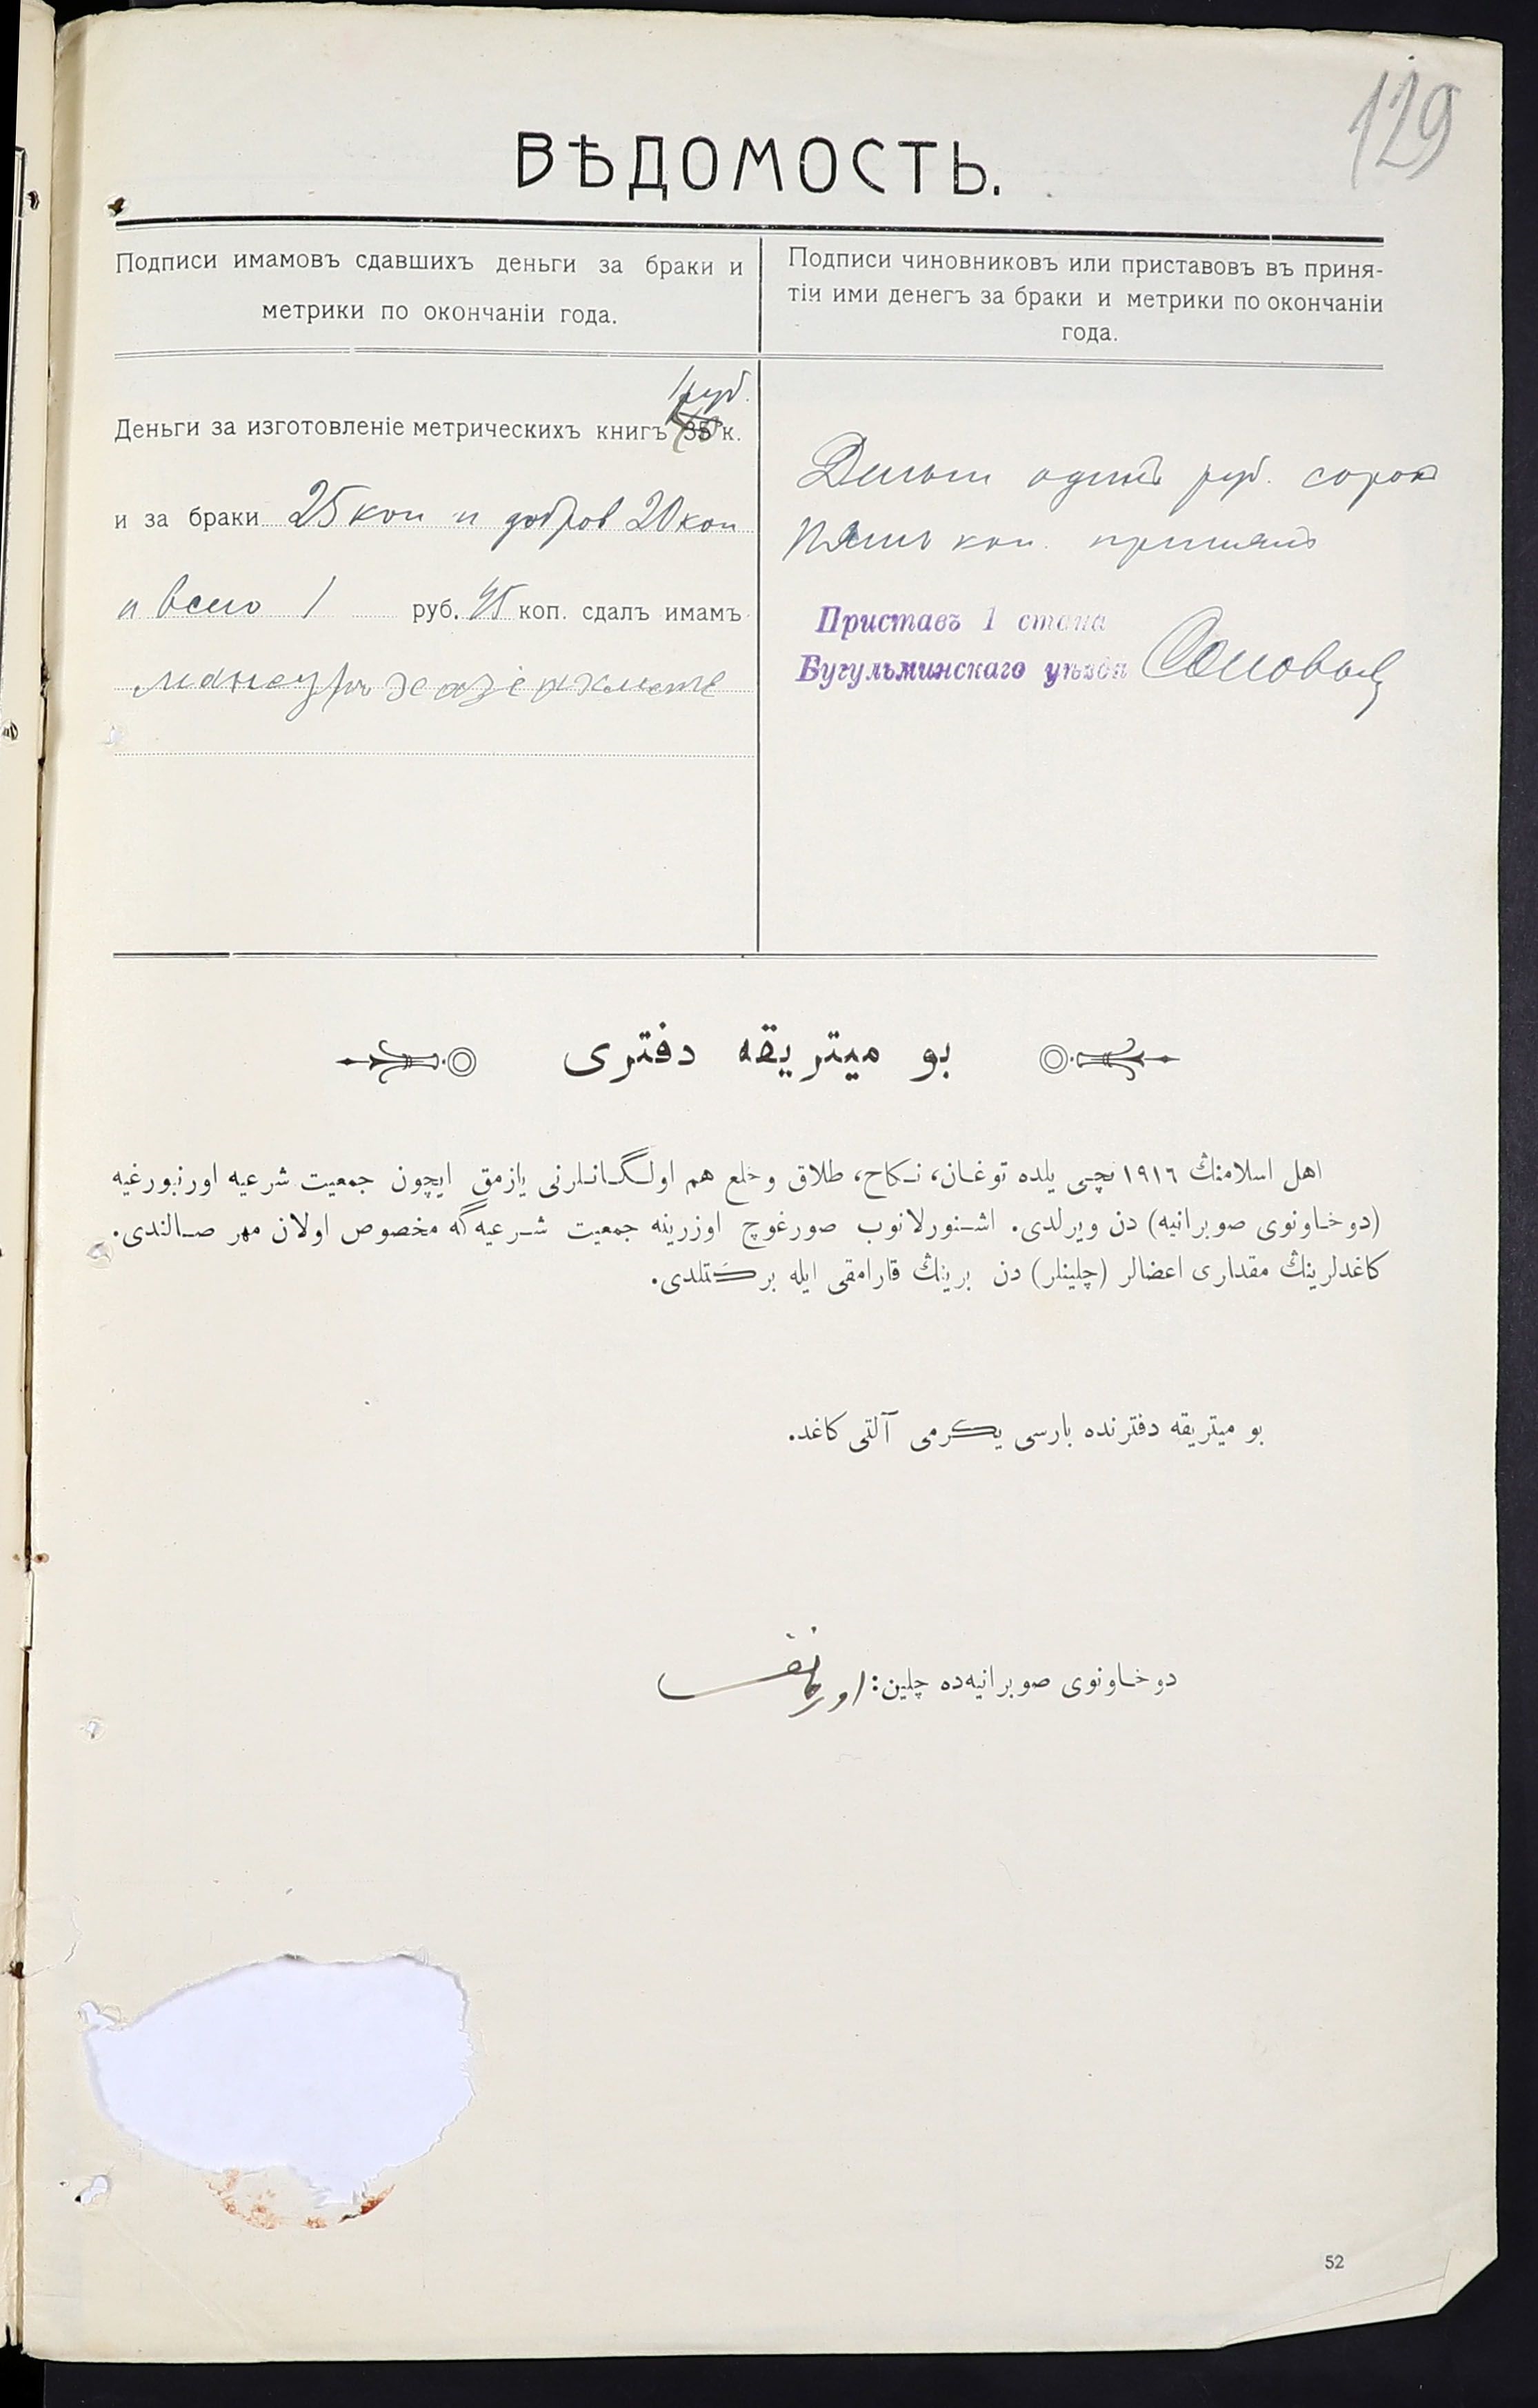 129
ВѢДОМОСТЬ.
Подписи имамовъ сдавшихъ деньги за браки и
метрики по окончаніи года.
Подписи чиновниковъ или приставовъ въ приня-
тіи ими денегъ за браки и метрики по окончаніи
года.
1 руб.
Деньги за изготовленіе метрическихъ книгъ 35 к.
и за браки 25 коп и 20 коп
и всего 1 руб. 45 коп. сдалъ имамъ
мансуръ
Деньги одинъ руб. сорок
пять коп. принялъ
Приставъ 1 стана
Бугульминскаго уѣзда
بو ميتريقه دفترى
اهل اسلامنڭ ١٩١٦ نچى يلده توغان، نكاح، طلاق وخلع هم اولگانلرنى يازمق ايچون جمعيت شرعيه اورنبورغيه
(دوخاونوى صوبرانيه) دن ويرلدى. اشنورلانوب صورغوچ اوزرينه جمعيت شرعيه گه مخصوص اولان مهر صالندى.
كاغدلرينڭ مقدارى اعضالر (چلينلر) دن برينڭ قارامقى ايله بركتلدى.
بو ميتريقه دفترنده بارسى يكرمى آلتى كاغد.
دوخاونوى صوبرانيه‌ده چلين:
52